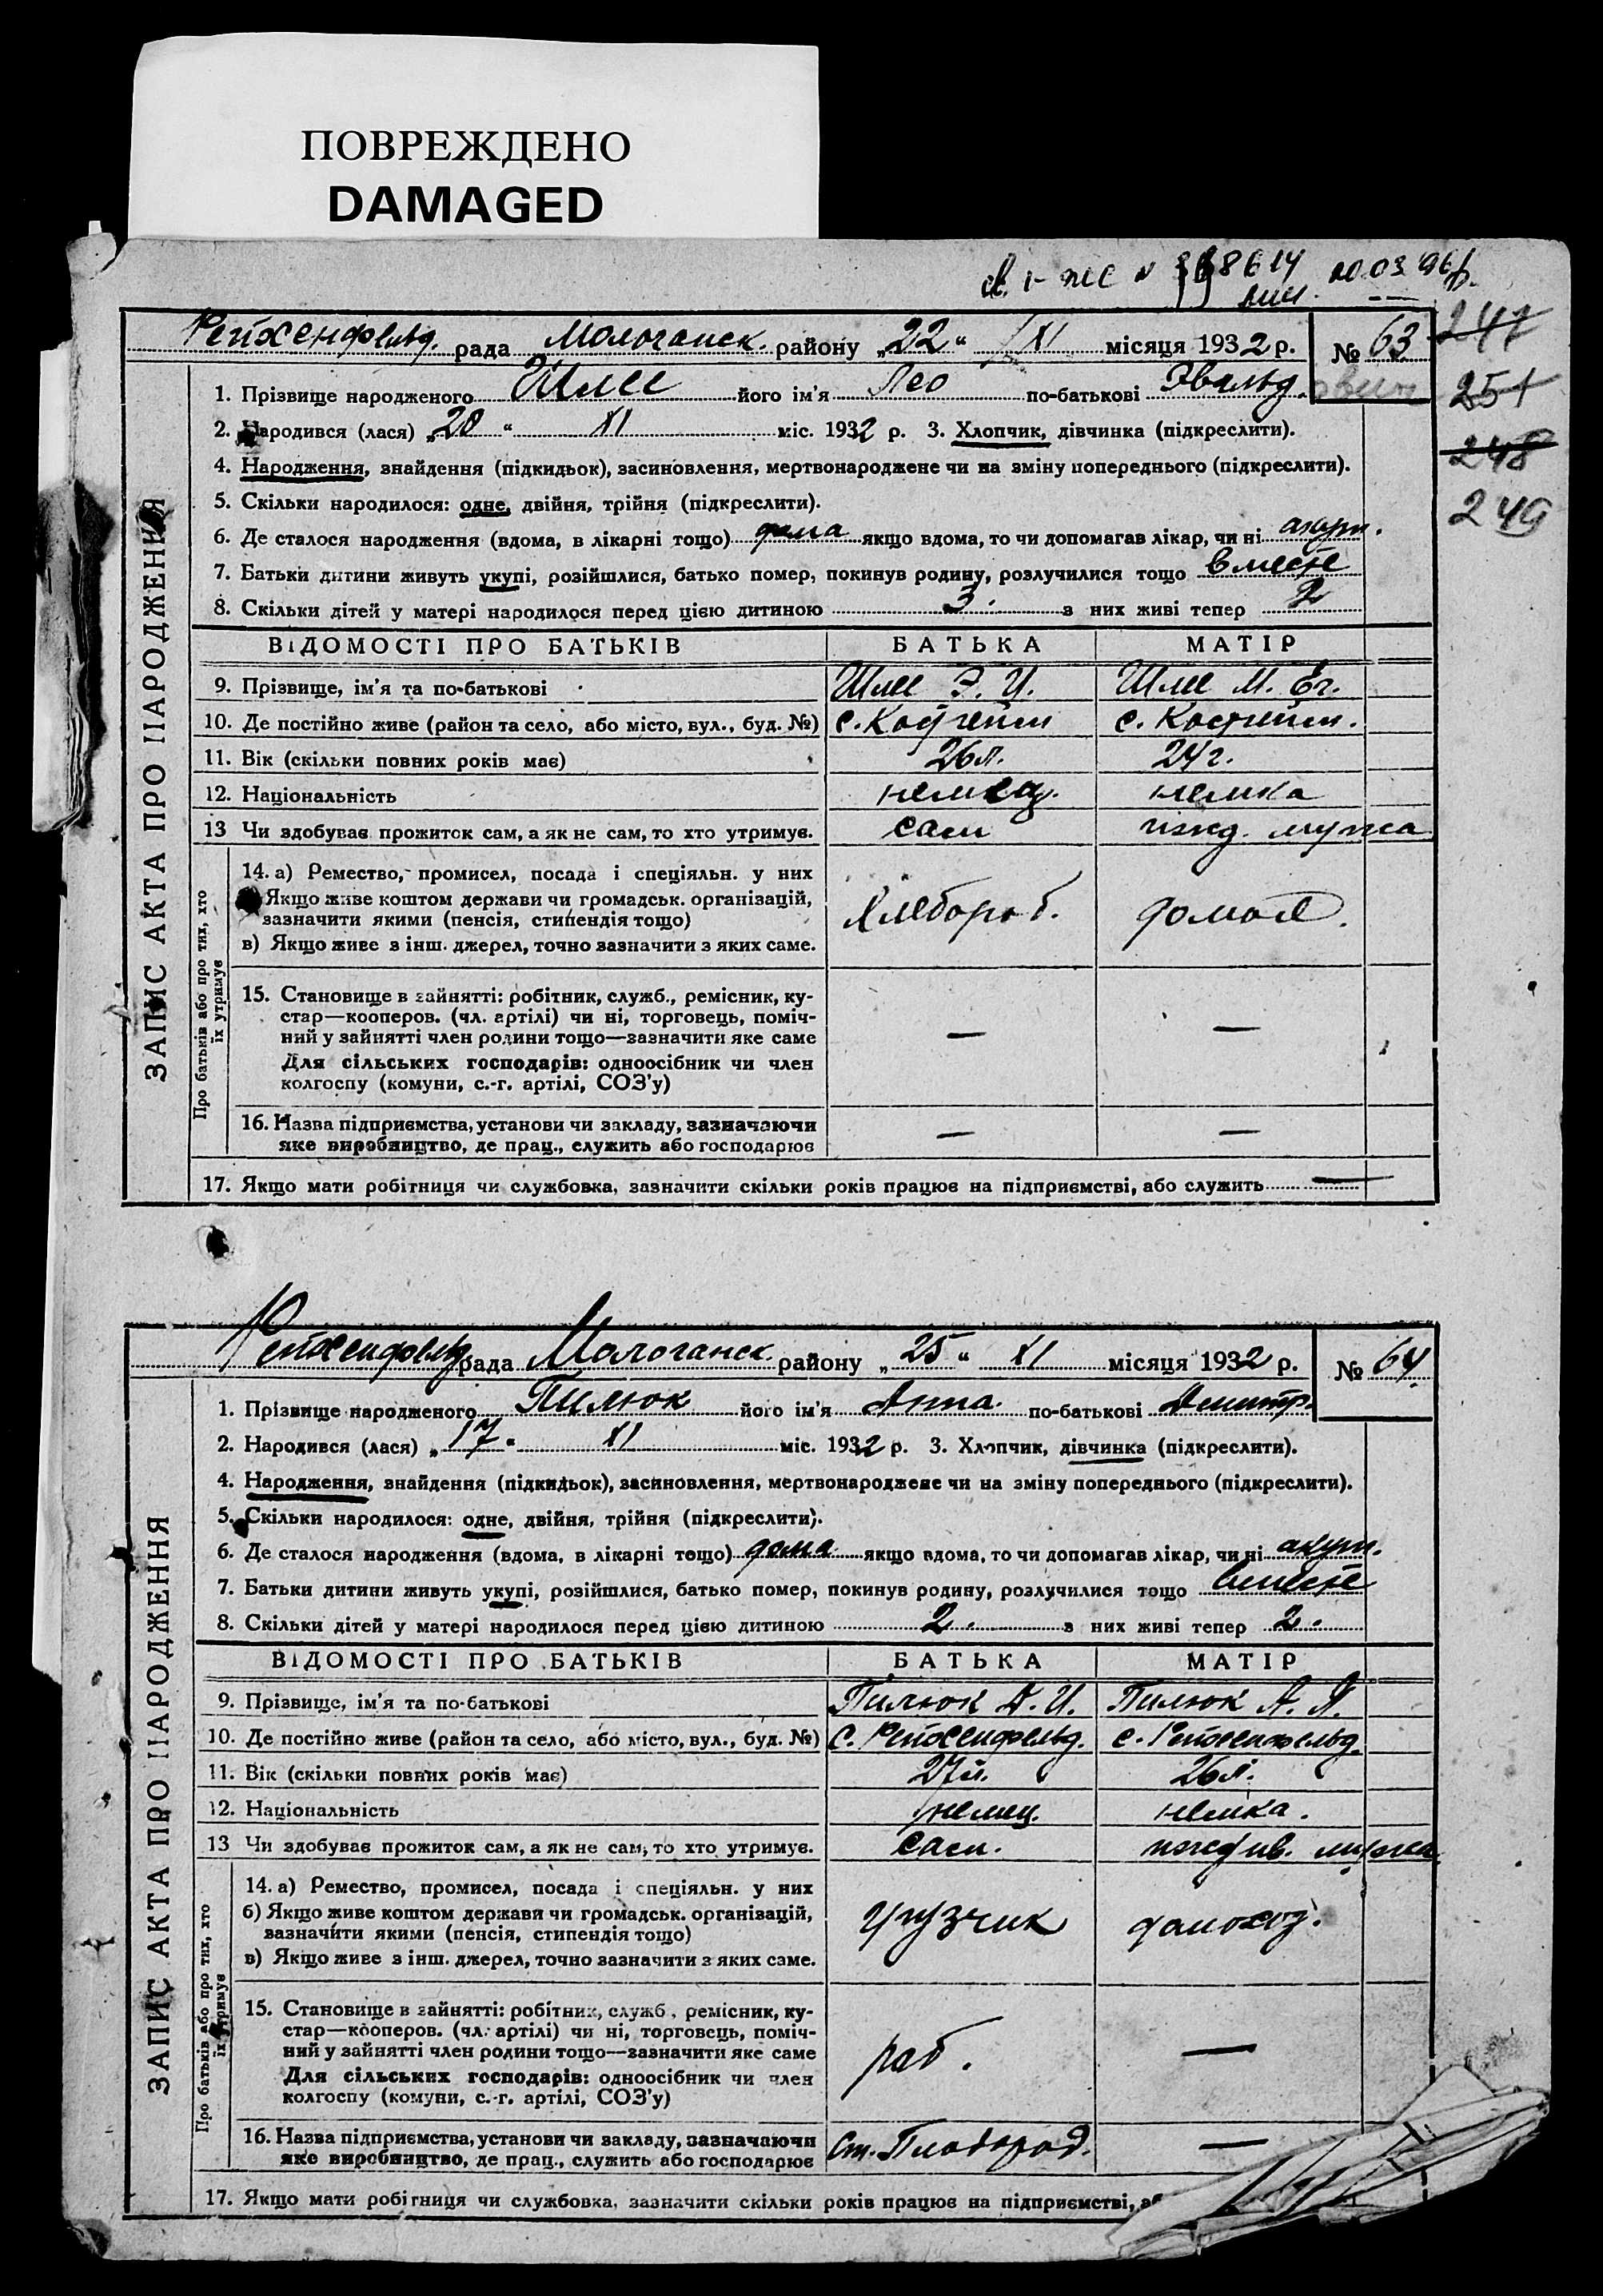 ПОВРЕЖДЕНО
DAMAGED
10.03.96
Рейхенфельд. рада Молочанск. району „22“ XI місяця 1932 р. № 63
247
1. Прізвище народженого Шлее його ім'я Лео по-батькові Эвальд.
251
2. Народився (лася) „20“ XI міс. 1932 р. 3. Хлопчик, дівчинка (підкреслити).
248
4. Народження, знайдення (підкидьок), засиновлення, мертвонароджене чи на зміну попереднього (підкреслити).
249
5. Скільки народилося: одне, двійня, трійня (підкреслити).
6. Де сталося народження (вдома, в лікарні тощо) дома якщо вдома, то чи допомагав лікар, чи ні акуш.
7. Батьки дитини живуть укупі, розійшлися, батько помер, покинув родину, розлучилися тощо вместе
8. Скільки дітей у матері народилося перед цією дитиною 3. з них живі тепер 2
ЗАПИС АКТА ПРО НАРОДЖЕННЯ
ВІДОМОСТІ ПРО БАТЬКІВ БАТЬКА МАТІР
9. Прізвище, ім'я та по-батькові Шлее Э. И. Шлее М. Ег.
10. Де постійно живе (район та село, або місто, вул., буд. №) с. Костгейм с. Костгейм.
11. Вік (скільки повних років має) 26 л. 24 г.
12. Національність немец. немка
13 Чи здобуває прожиток сам, а як не сам, то хто утримує. сам ижд. мужа
Про батьків або про тих, хто їх утримує
14. а) Ремество, промисел, посада і спеціяльн. у них
Якщо живе коштом держави чи громадськ. організацій,
зазначити якими (пенсія, стипендія тощо) Хлебороб.
в) Якщо живе з інш. джерел, точно зазначити з яких саме.
15. Становище в зайнятті: робітник, служб., ремісник, ку-
стар—кооперов. (чл. артілі) чи ні, торговець, поміч-
ний у зайнятті член родини тощо—зазначити яке саме — —
Для сільських господарів: одноосібник чи член
колгоспу (комуни, с.-г. артілі, СОЗ'у)
16. Назва підприємства, установи чи закладу, зазначаючи
яке виробництво, де прац., служить або господарює — —
17. Якщо мати робітниця чи службовка, зазначити скільки років працює на підприємстві, або служить —
Рейхенфельд рада Молочанск. району „25“ XI місяця 1932 р. № 64
1. Прізвище народженого Пилюк його ім'я Анна по-батькові Дмитр.
2. Народився (лася) „17“ XI міс. 1932 р. 3. Хлопчик, дівчинка (підкреслити).
4. Народження, знайдення (підкидьок), засиновлення, мертвонароджене чи на зміну попереднього (підкреслити).
5. Скільки народилося: одне, двійня, трійня (підкреслити).
6. Де сталося народження (вдома, в лікарні тощо) дома якщо вдома, то чи допомагав лікар, чи ні акуш.
7. Батьки дитини живуть укупі, розійшлися, батько помер, покинув родину, розлучилися тощо вместе
8. Скільки дітей у матері народилося перед цією дитиною 2. з них живі тепер 2.
ЗАПИС АКТА ПРО НАРОДЖЕННЯ
ВІДОМОСТІ ПРО БАТЬКІВ БАТЬКА МАТІР
9. Прізвище, ім'я та по-батькові Пилюк Д. И. Пилюк А. Я.
10. Де постійно живе (район та село, або місто, вул., буд. №) с. Рейхенфельд. с. Рейхенфельд.
11. Вік (скільки повних років має) 27 л. 26 л.
12. Національність немец. немка.
13 Чи здобуває прожиток сам, а як не сам, то хто утримує. сам. иждив. мужа
Про батьків або про тих, хто їх утримує
14. а) Ремество, промисел, посада і спеціяльн. у них
б) Якщо живе коштом держави чи громадськ. організацій,
зазначити якими (пенсія, стипендія тощо) грузчик домохоз.
в) Якщо живе з інш. джерел, точно зазначити з яких саме.
15. Становище в зайнятті: робітник, служб., ремісник, ку-
стар—кооперов. (чл. артілі) чи ні, торговець, поміч-
ний у зайнятті член родини тощо—зазначити яке саме раб. —
Для сільських господарів: одноосібник чи член
колгоспу (комуни, с.-г. артілі, СОЗ'у)
16. Назва підприємства, установи чи закладу, зазначаючи
яке виробництво, де прац., служить або господарює Ст. Плодород. —
17. Якщо мати робітниця чи службовка, зазначити скільки років працює на підприємстві,